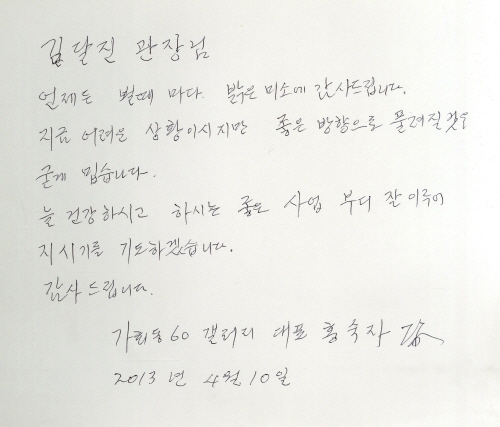 김달진 관장님
언제든 뵐때 마다 밝은 미소에 감사드립니다.
지금 어려운 상황이시지만 좋은 방향으로 풀려질것을
굳게 믿습니다.
늘 건강하시고 하시는 좋은 사업 부디 잘 이루어
지시기를 기도하겠습니다.
감사드립니다.
가회동60 갤러리 대표 홍숙자
2013년 4월 10일